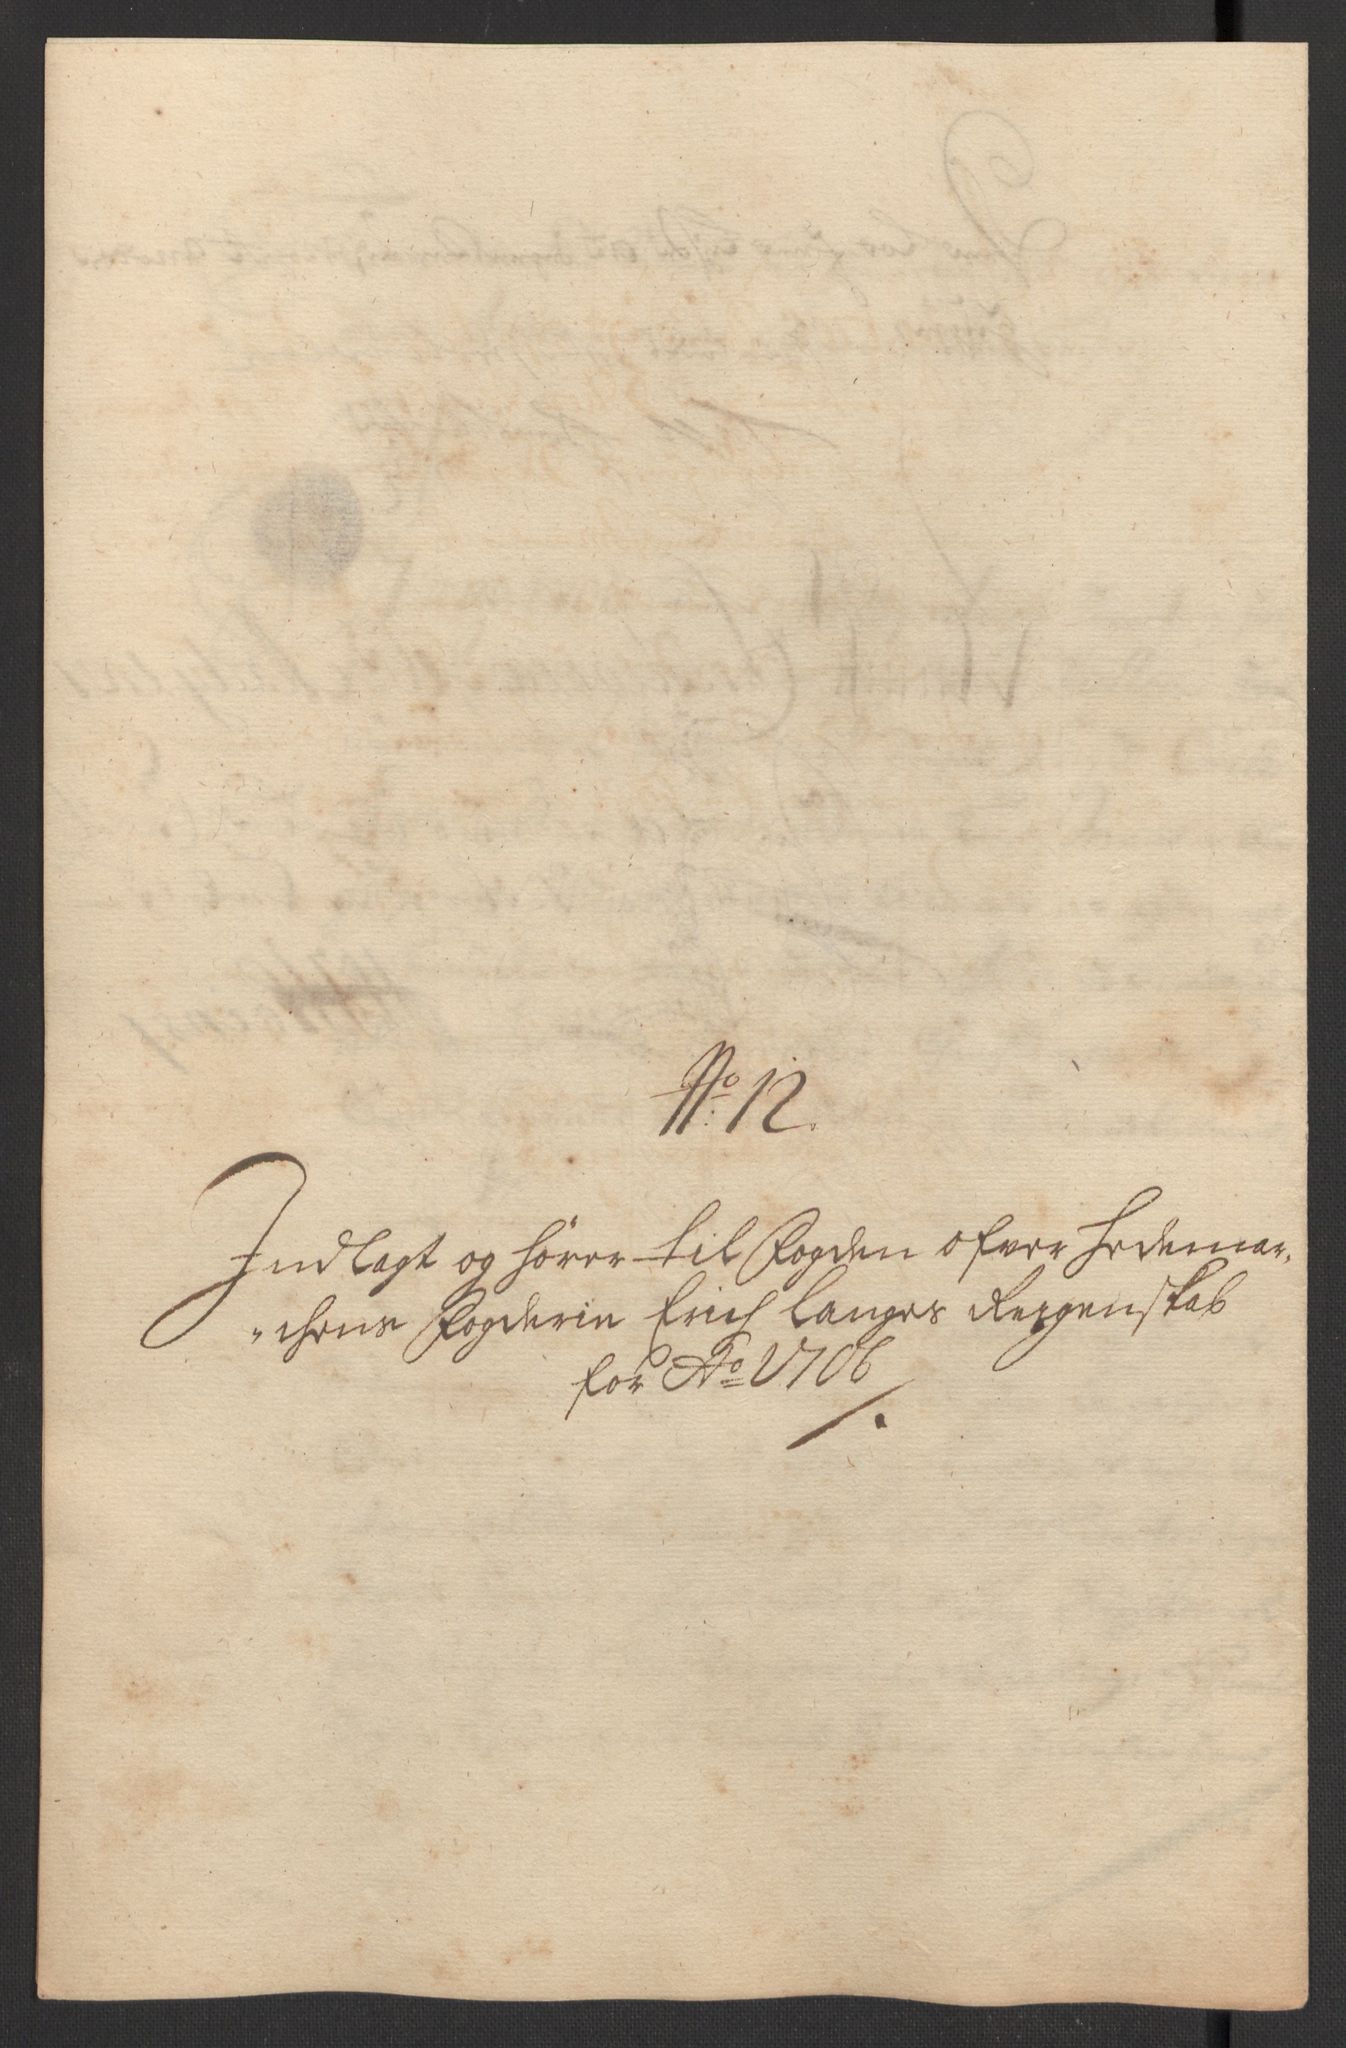 No: 12.
Indlagt og hører til Fogden ofver Hedemar-
chens Fogderie Erich Langes Regenskab
for Ao 1706